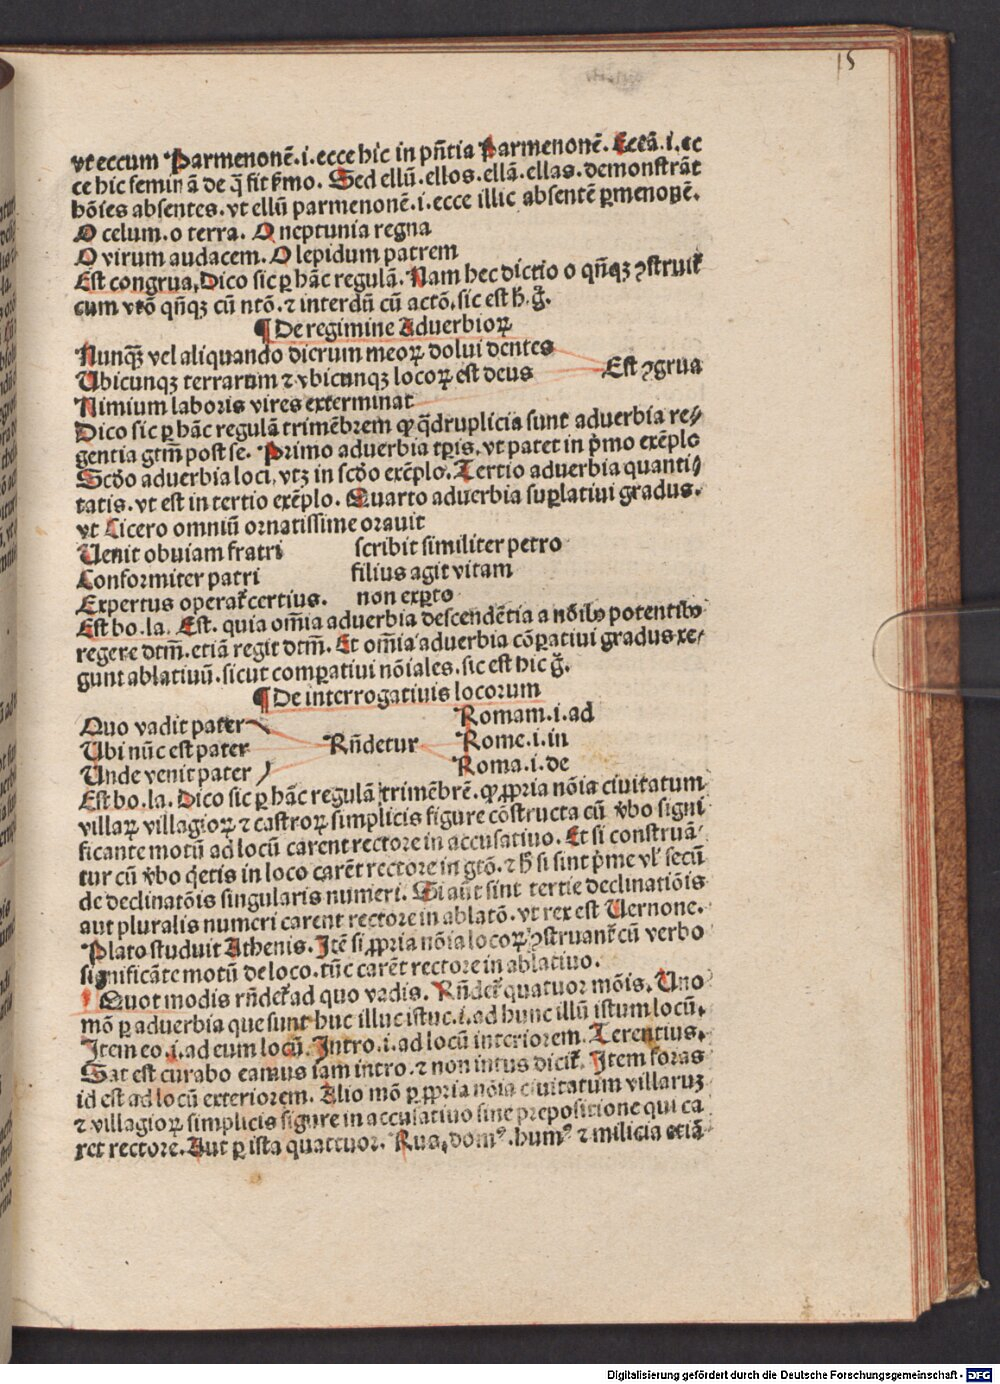 15
vt eccum Parmenonē.i.ecce hic in pn̄tia Parmenonē. Eccā.i.ec
ce hic feminā de q̄ fit ẜmo. Sed ellū.ellos.ellā.ellas.demonstrāt
hōies absentes.vt ellū parmenonē.i.ecce illic absentē ꝑmenonē.
O celum.o terra. O neptunia regna
O virum audacem. O lepidum patrem
Est congrua. Dico sic ꝑ hāc regulā. Nam hec dictio o qn̄qꝫ ꝯstruit̄
cum vtō qn̄qꝫ cū ntō.⁊ interdū cū actō.sic est h̄.ḡ.
¶ De regimine Aduerbioꝝ
Nunqꝫ vel aliquando dierum meoꝝ dolui dentes
Ubicunqꝫ terrarum ⁊ vbicunqꝫ locoꝝ est deus Est ꝯgrua
Nimium laboris vires exterminat
Dico sic ꝑ hāc regulā trimēbrem ꝙ q̄druplicia sunt aduerbia re⸗
gentia gtm̄ post se. Primo aduerbia tꝑis.vt patet in p̄mo exēplo
Scd̄o aduerbia loci.vtꝫ in scd̄o exēplo. Tertio aduerbia quanti⸗
tatis.vt est in tertio exēplo. Quarto aduerbia suꝑlatiui gradus.
vt Cicero omniū ornatissime orauit
Uenit obuiam fratri scribit similiter petro
Conformiter patri filius agit vitam
Expertus operat̄ certius. non exꝑto
Est bo.la. Est. quia om̄ia aduerbia descendētia a nōibꝫ potentibꝫ
regere dtm̄.etiā regit dtm̄. Et om̄ia aduerbia cōꝑatiui gradus re⸗
gunt ablatiuū.sicut comparatiui nōiales.sic est hic ḡ.
¶ De interrogatiuis locorum
Quo vadit pater Romam.i.ad
Ubi nūc est pater Rn̄detur Rome.i.in
Unde venit pater Roma.i.de
Est bo.la. Dico sic ꝑ hāc regulā trimēbrē.ꝙ ꝓpria nōia ciuitatum
villaꝝ villagioꝝ ⁊ castroꝝ simplicis figure cōstructa cū v̄bo signi
ficante motū ad locū carent rectore in accusatiuo. Et si construā⸗
tur cū v̄bo q̄etis in loco carēt rectore in gtō.⁊ h̄ si sint p̄me vl̄ secū
de declinatōis singularis numeri. Si aūt sint tertie declinatiōis
aut pluralis numeri carent rectore in ablatō.vt rex est Uernone.
Plato studuit Athenis. Itē si ꝓpria nōia locoꝝ ꝯstruant̄ cū verbo
significāte motū de loco.tūc carēt rectore in ablatiuo.
¶ Quot modis rn̄det̄ ad quo vadis. Rn̄det̄ quatuor mōis. Uno
mō ꝑ aduerbia que sunt huc illuc istuc.i.ad hunc illū istum locū.
Item eo.i.ad eum locū. Intro.i.ad locū interiorem. Terentius.
Sat est curabo eamus iam intro.⁊ non intus dicit̄. Item foras
id est ad locū exteriorem. Alio mō ꝑ ꝓpria nōia ciuitatum villaruꝫ
⁊ villagioꝝ simplicis figure in accusatiuo sine prepositione qui ca
ret rectore. Aut ꝑ ista quattuor. Rus, domꝰ.humꝰ ⁊ milicia etiā
Digitalisierung gefördert durch die Deutsche Forschungsgemeinschaft - DFG